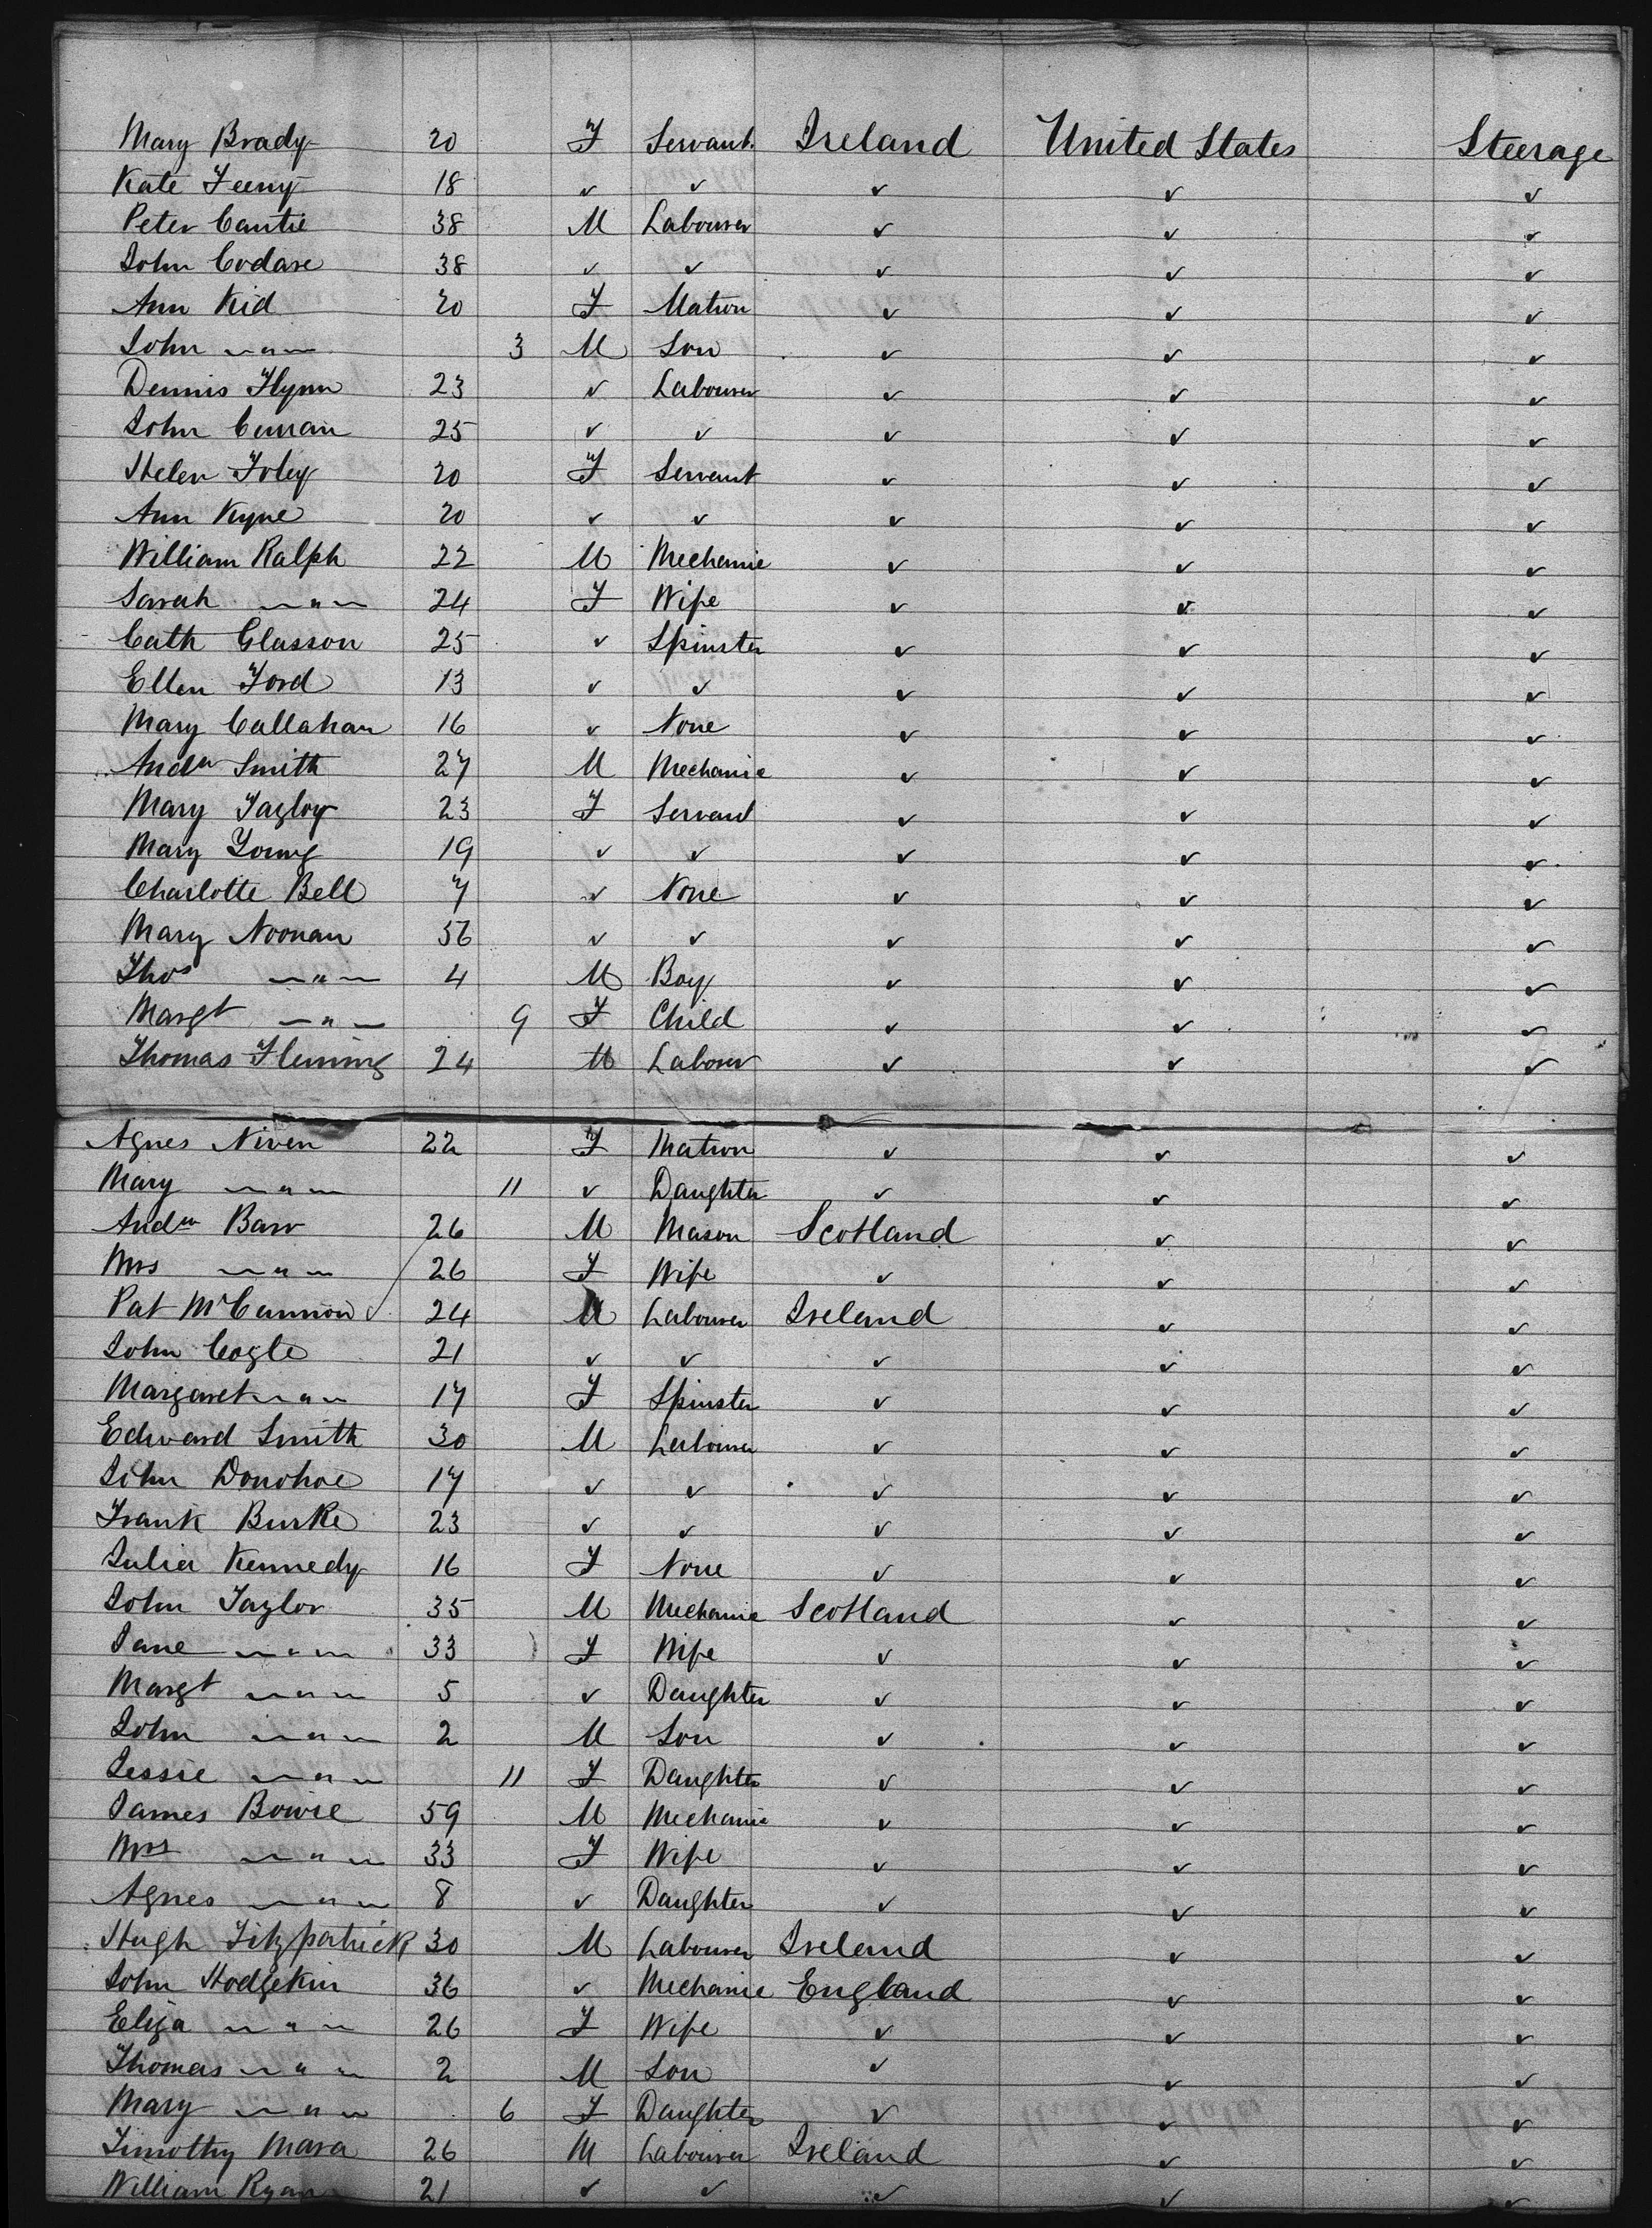 Mary Brady 20 F Servant Ireland United States Steerage
Kate Feeny 18 ✓ ✓ ✓ ✓ ✓
Peter Cantie 38 M Labourer ✓ ✓ ✓
John Codare 38 ✓ ✓ ✓ ✓ ✓
Ann Kid 20 F Matron ✓ ✓ ✓
John " 3 M Son ✓ ✓ ✓
Dennis Flynn 23 ✓ Labourer ✓ ✓ ✓
John Curran 25 ✓ ✓ ✓ ✓ ✓
Helen Foley 20 F Servant ✓ ✓ ✓
Ann Kyne 20 ✓ ✓ ✓ ✓ ✓
William Ralph 22 M Mechanic ✓ ✓ ✓
Sarah " 24 F Wife ✓ ✓ ✓
Cath Glasson 25 ✓ Spinster ✓ ✓ ✓
Ellen Ford 13 ✓ ✓ ✓ ✓ ✓
Mary Callahan 16 ✓ None ✓ ✓ ✓
Andw Smith 27 M Mechanic ✓ ✓ ✓
Mary Tagloy 23 F Servant ✓ ✓ ✓
Mary Young 19 ✓ ✓ ✓ ✓ ✓
Charlotte Bell 7 ✓ None ✓ ✓ ✓
Mary Noonan 36 ✓ ✓ ✓ ✓ ✓
Thos " 4 M Boy ✓ ✓ ✓
Margt " 9 F Child ✓ ✓ ✓
Thomas Fleming 24 M Labour ✓ ✓ ✓
Agnes Niven 22 F Matron ✓ ✓ ✓
Mary " 11 ✓ Daughter ✓ ✓ ✓
Andw Barr 26 M Mason Scotland ✓ ✓
Mrs " 26 F Wife ✓ ✓ ✓
Pat McCannon 24 M Labourer Ireland ✓ ✓
John Cogle 21 ✓ ✓ ✓ ✓ ✓
Margaret " 17 F Spinster ✓ ✓ ✓
Edward Smith 30 M Labourer ✓ ✓ ✓
John Donohoe 17 ✓ ✓ ✓ ✓ ✓
Frank Burke 23 ✓ ✓ ✓ ✓ ✓
Julia Kennedy 16 F None ✓ ✓ ✓
John Taylor 35 M Mechanic Scotland ✓ ✓
Jane " 33 F Wife ✓ ✓ ✓
Margt " 5 ✓ Daughter ✓ ✓ ✓
John " 2 M Son ✓ ✓ ✓
Jessie " 11 F Daughter ✓ ✓ ✓
James Bowie 59 M Mechanic ✓ ✓ ✓
Mrs " 33 F Wife ✓ ✓ ✓
Agnes " 8 ✓ Daughter ✓ ✓ ✓
Hugh Fitzpatrick 30 M Labourer Ireland ✓ ✓
John Hodgekin 36 ✓ Mechanic England ✓ ✓
Eliza " 26 F Wife ✓ ✓ ✓
Thomas " 2 M Son ✓ ✓ ✓
Mary " 6 F Daughter ✓ ✓ ✓
Timothy Mara 26 M Labourer Ireland ✓ ✓
William Ryan 21 ✓ ✓ ✓ ✓ ✓